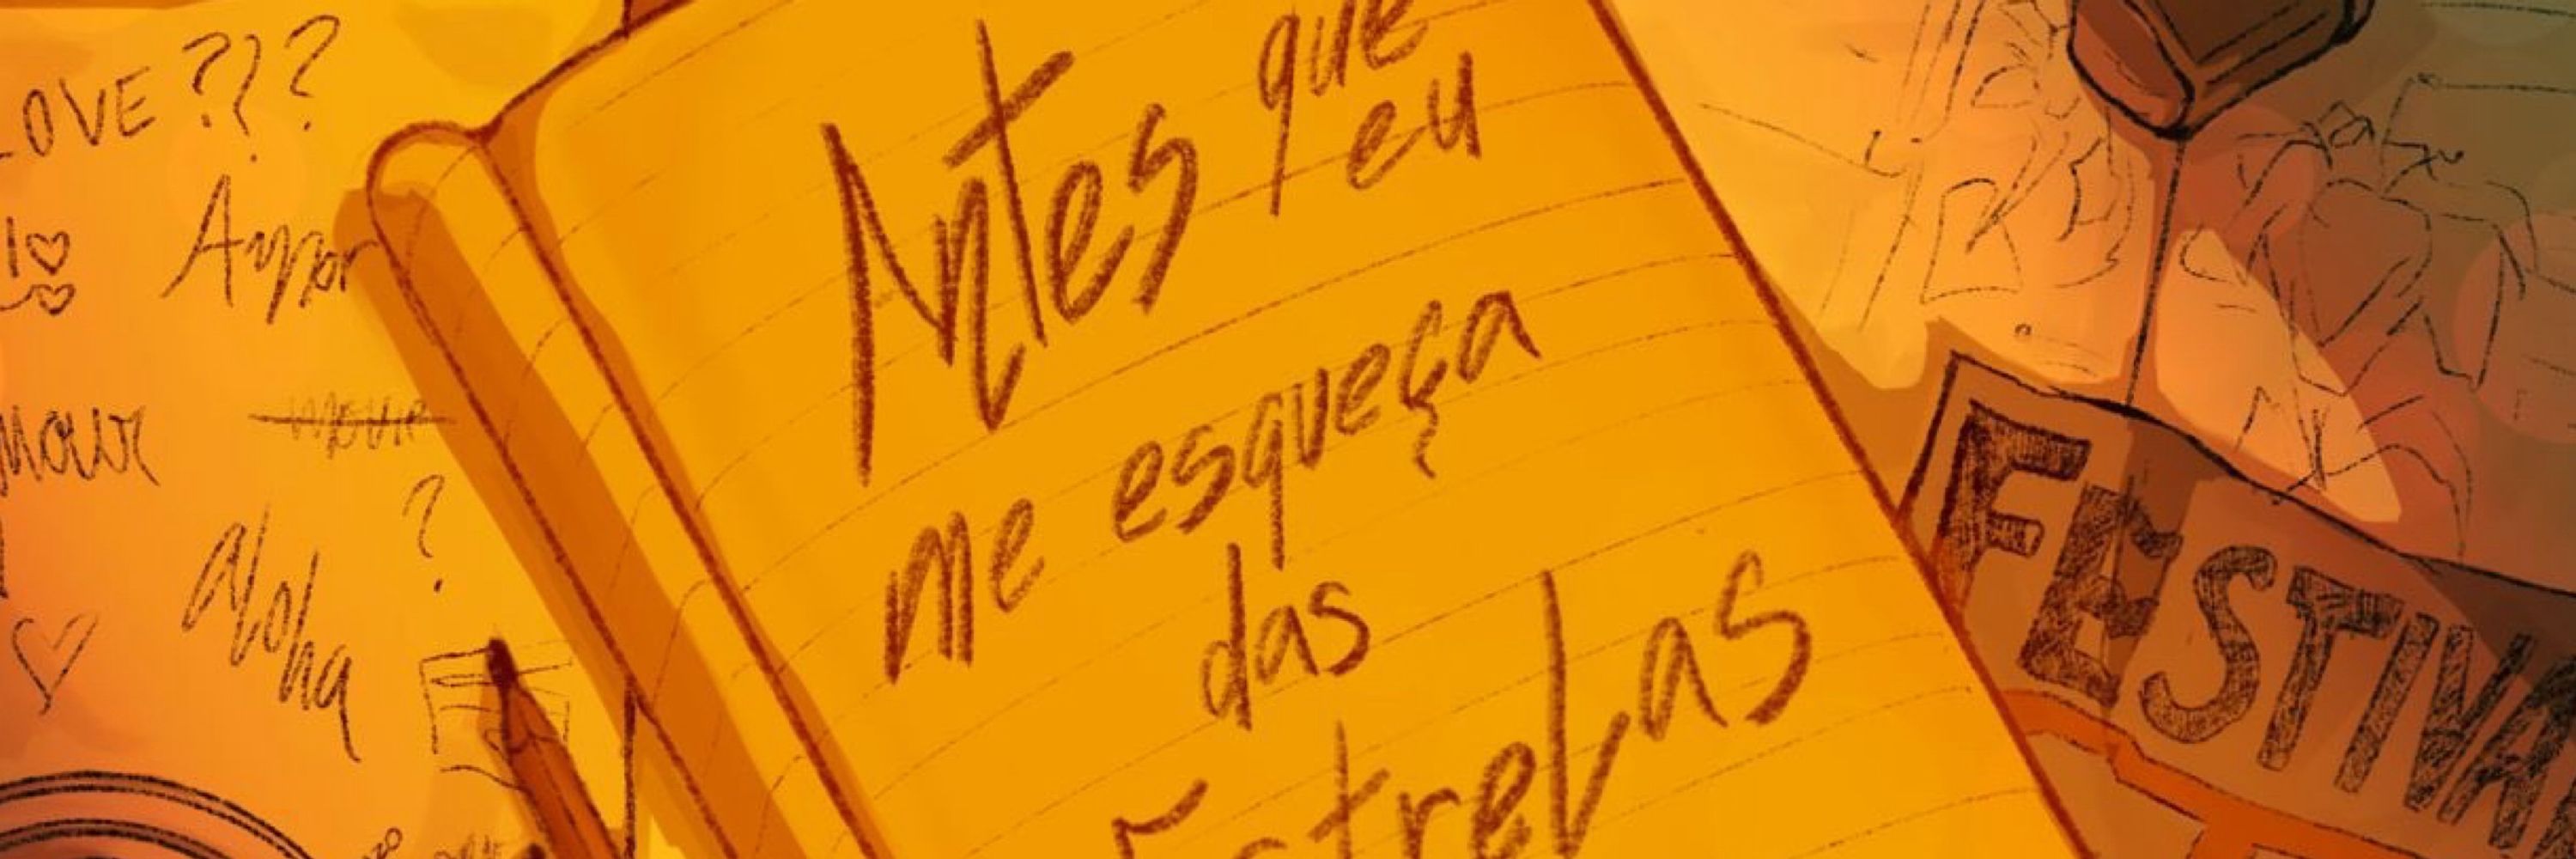 LOVE???
Amor
mour
?
aloha
Antes que
eu
me esqueça
das
Estrelas
FESTIVA